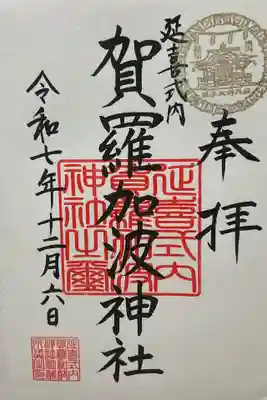 奉拝
延喜式内
賀羅加波神社
令和七年十二月六日
延喜式内
賀羅加波
神社之璽